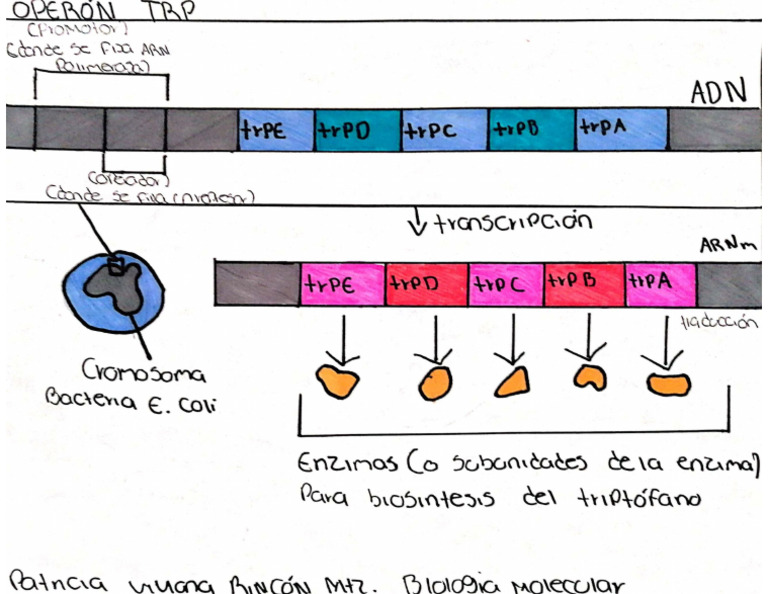 OPERÓN TRP
(Promotor)
(donde se fija ARN
Polimerasa)
ADN
trPE trPD trPC trPB trPA
(operador)
(donde se fija
transcripción
ARNm
trPE trPD trPC trPB trPA
traducción
Cromosoma
Bacteria E. coli
Enzimas (o subunidades de la enzima)
Para biosíntesis del triptófano
Patricia Viviana RINCÓN Mtz. Biología Molecular